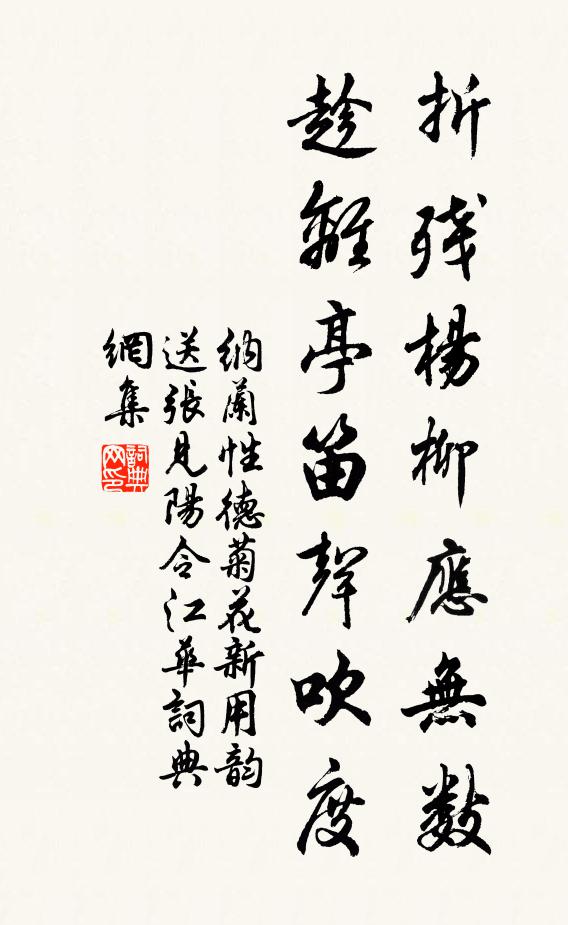 折残楊柳應無數
趁離亭笛聲吹度
納蘭性德菊花新用韵
送張見陽令江華詞典
網集
詞典
网印